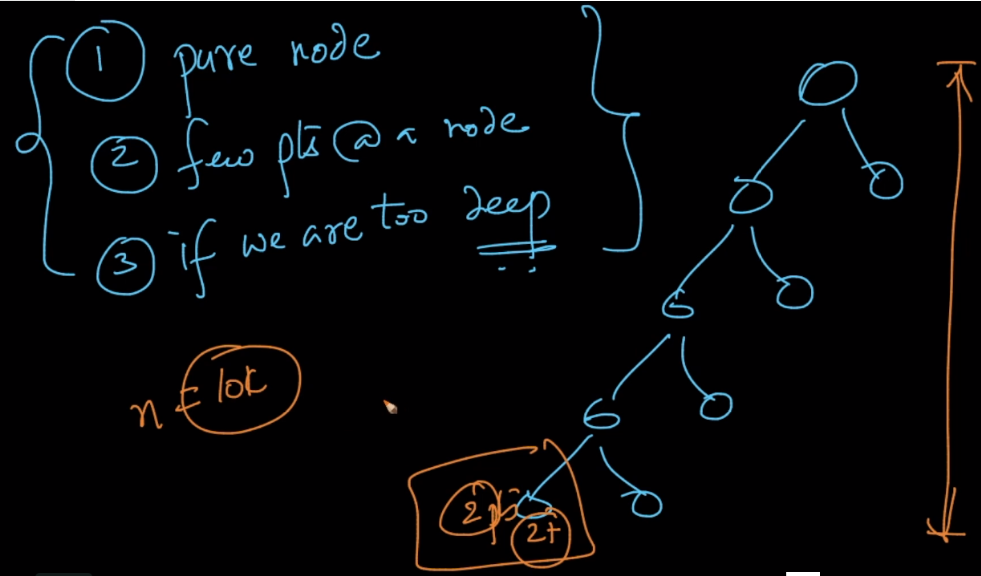 1 pure node
2 few pts @ a node
3 if we are too deep
n = 10k
2 pts
2+